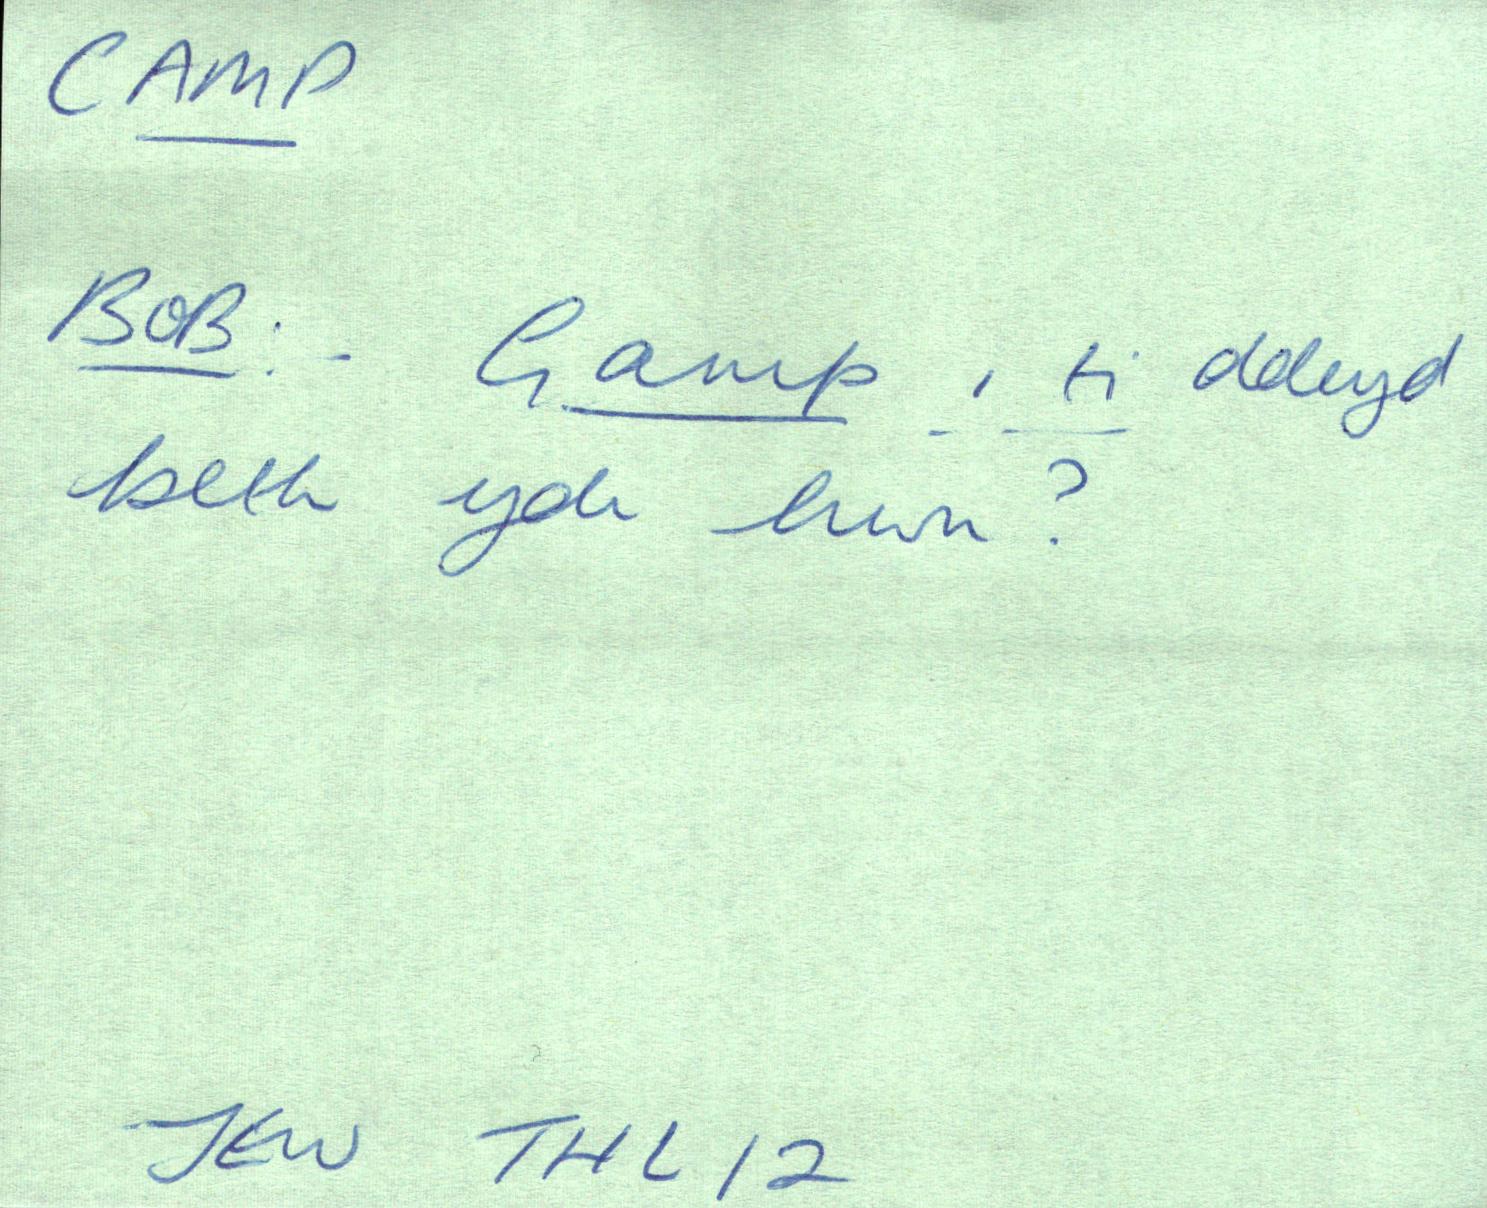 CAMP
BOB:- Gamp i ti ddeyd
beth ydi hwn?
JEW THL 12